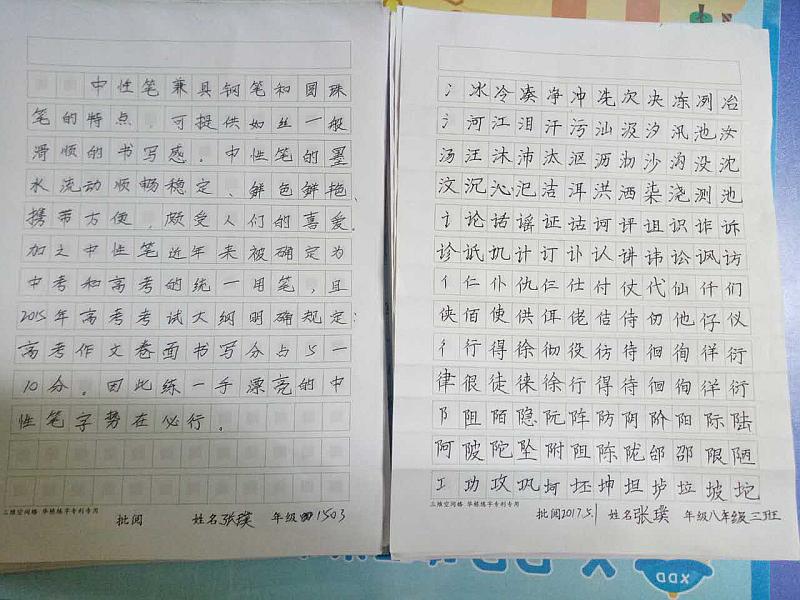 中性笔兼具钢笔和圆珠
笔的特点，可提供如丝一般
滑顺的书写感。中性笔的墨
水流动顺畅稳定、鲜色鲜艳、
携带方便，颇受人们的喜爱。
加之中性笔近年来被确定为
中考和高考的统一用笔，且
2015年高考考试大纲明确规定：
高考作文卷面书写分占5一
10分。因此练一手漂亮的中
性笔字势在必行。
三维空间格 华栋练字专利专用
批阅 姓名张璞 年级 1503
冫冰冷凑净冲冼次决冻冽冶
氵河江泪汗污汕汲汐汛池汝
汤汪沐沛汰沤沥沏沙沟没沈
汶沉沁汜洁洱洪洒柒浇测池
讠论话谣证诂诃评诅识诈诉
诊诋讥计订讣认讲讳讼讽访
亻仁仆仇仨仕付仗代仙仟们
侠佰使供佴佬佶侍仞他仔仪
彳行得徐彻役彷待徊徇徉衍
律很徒徕徐行得待徊徇徉衍
阝阻陌隐阮阵防阴阶阳际陆
阿陂陀坠附阻陈陇邰邵限陋
工功攻巩坷坯坤坦垆垃坡坨
三维空间格 华栋练字专利专用
批阅2017.5.1 姓名张璞 年级八年级三班
XDD